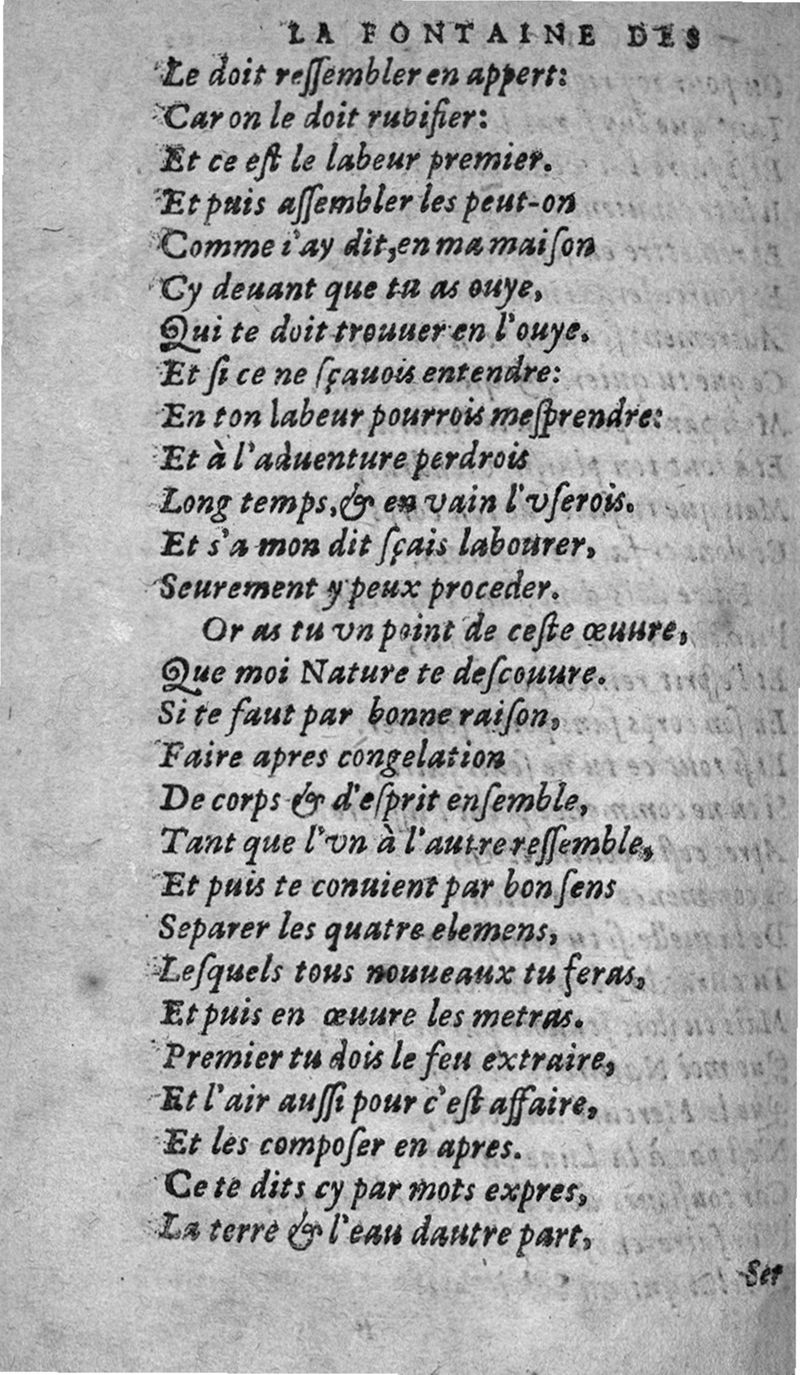 LA FONTAINE DES
Le doit reſſembler en appert:
Car on le doit rubifier:
Et ce eſt le labeur premier.
Et puis aſſembler les peut-on
Comme i'ay dit, en ma maiſon
Cy deuant que tu as ouye,
Qui te doit trouuer en l'ouye.
Et ſi ce ne ſçauois entendre:
En ton labeur pourrois meſprendre:
Et à l'aduenture perdrois
Long temps, & en vain l'vſerois.
Et s'a mon dit ſçais labourer,
Seurement y peux proceder.
Or as tu vn point de ceſte œuure,
Que moi Nature te deſcouure.
Si te faut par bonne raiſon,
Faire apres congelation
De corps & d'eſprit enſemble,
Tant que l'vn à l'autre reſſemble,
Et puis te conuient par bon ſens
Separer les quatre elemens,
Leſquels tous nouueaux tu feras,
Et puis en œuure les metras.
Premier tu dois le feu extraire,
Et l'air auſſi pour c'eſt affaire,
Et les compoſer en apres.
Ce te dits cy par mots expres,
La terre & l'eau dautre part,
Ser